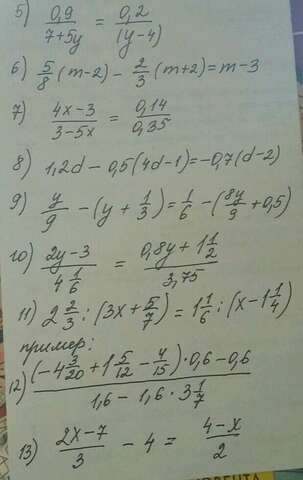 5) 0,9/(7+5y) = 0,2/(y-4)
6) 5/8 (m-2) - 2/3 (m+2) = m-3
7) (4x-3)/(3-5x) = 0,14/0,35
8) 1,2d - 0,5(4d-1) = -0,7(d-2)
9) y/9 - (y + 1/3) = 1/6 - (8y/9 + 0,5)
10) (2y-3)/(4 1/6) = (0,8y + 1 1/2)/3,75
11) 2 2/3 : (3x + 5/7) = 1 1/6 : (x - 1 1/4)
пример:
12) ((-4 3/20 + 1 5/12 - 4/15) · 0,6 - 0,6)/(1,6 - 1,6 · 3 1/7)
13) (2x-7)/3 - 4 = (4-x)/2